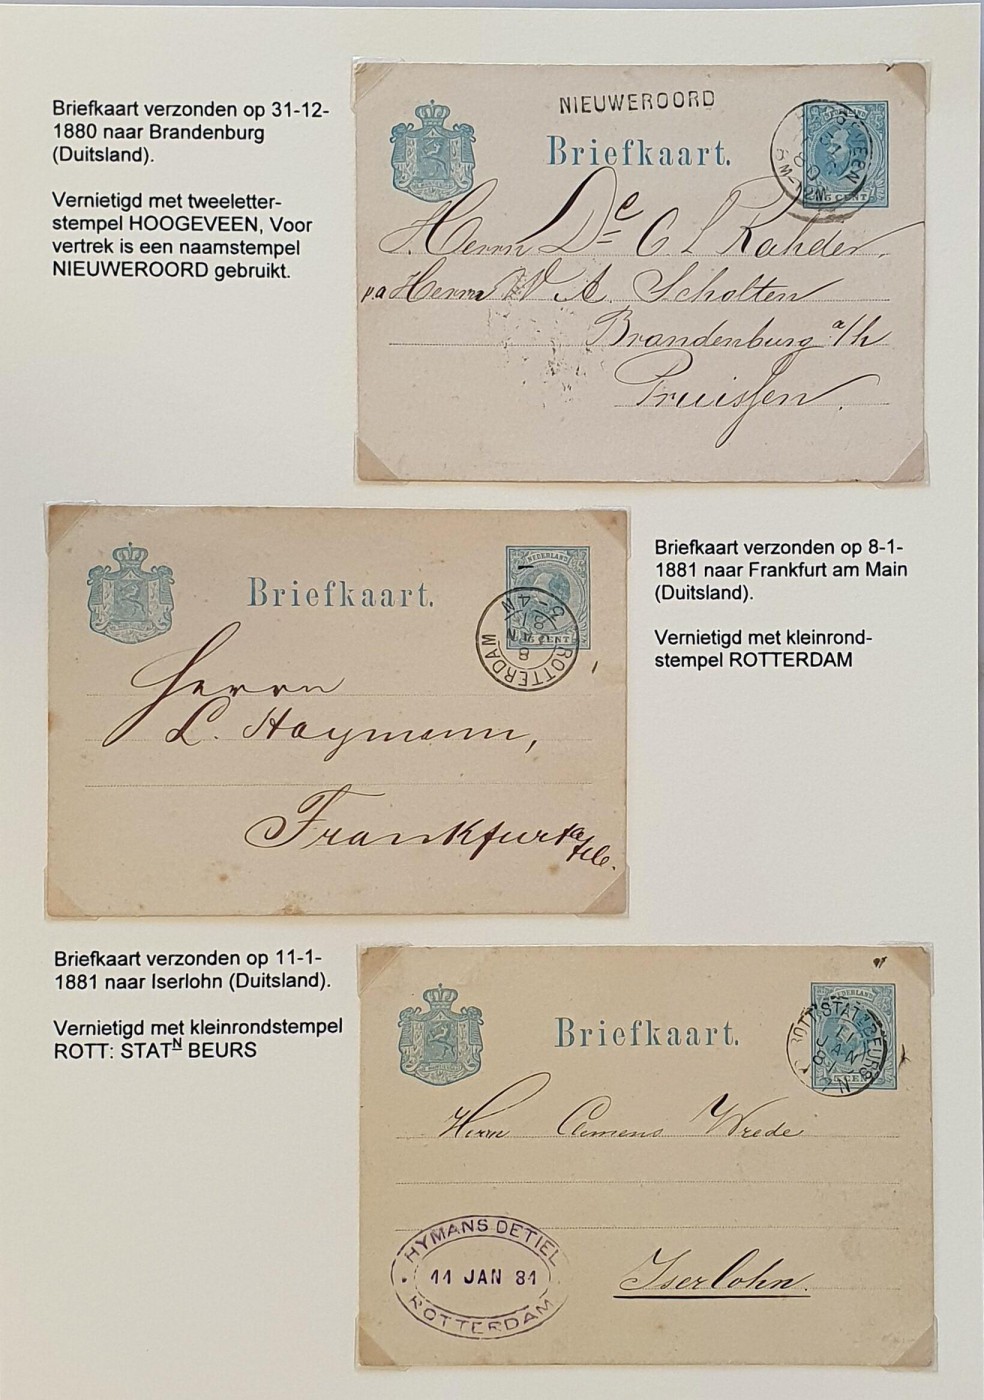 Briefkaart verzonden op 31-12-
1880 naar Brandenburg
(Duitsland).
Vernietigd met tweeletter-
stempel HOOGEVEEN, Voor
vertrek is een naamstempel
NIEUWEROORD gebruikt.
NIEUWEROORD
Briefkaart.
HOOGEVEEN
5 CENT
Herrn De C L Rahder.
p.a Herrn W A. Scholten
Brandenburg a/h
Pruissen.
Briefkaart verzonden op 8-1-
1881 naar Frankfurt am Main
(Duitsland).
Vernietigd met kleinrond-
stempel ROTTERDAM
Briefkaart.
NEDERLAND
5 CENT
ROTTERDAM
Herrn
L. Haymann,
Frankfurt a/M.
Briefkaart verzonden op 11-1-
1881 naar Iserlohn (Duitsland).
Vernietigd met kleinrondstempel
ROTT: STATN BEURS
Briefkaart.
NEDERLAND
ROTT: STATN BEURS
11 JAN 81
Herrn Clemens Wrede
HYMANS DETIEL
11 JAN 81
ROTTERDAM
Iserlohn.